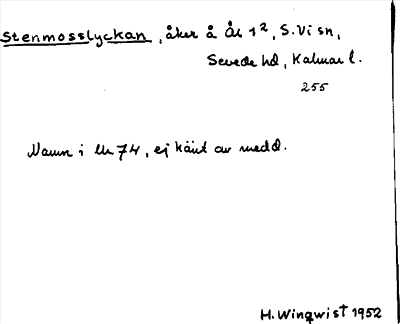 Stenmosslyckan, åker å År 1², S. Vi sn,
Sevede hd, Kalmar l.
255
Namn i Lm 74, ej känt av medd.
H. Wingwist 1952